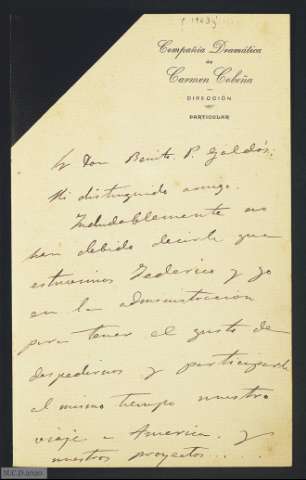 (¿1903?)
Compañía Dramática
de
Carmen Cobeña
DIRECCIÓN
PARTICULAR
Sr Don Benito P. Galdós.
Mi distinguido amigo.
Indudablemente no
han debido decirle que
estuvimos Federico y yo
en la administracion
para tener el gusto de
despedirnos y participarle
al mismo tiempo nuestro
viaje a America, y
nuestros proyectos....